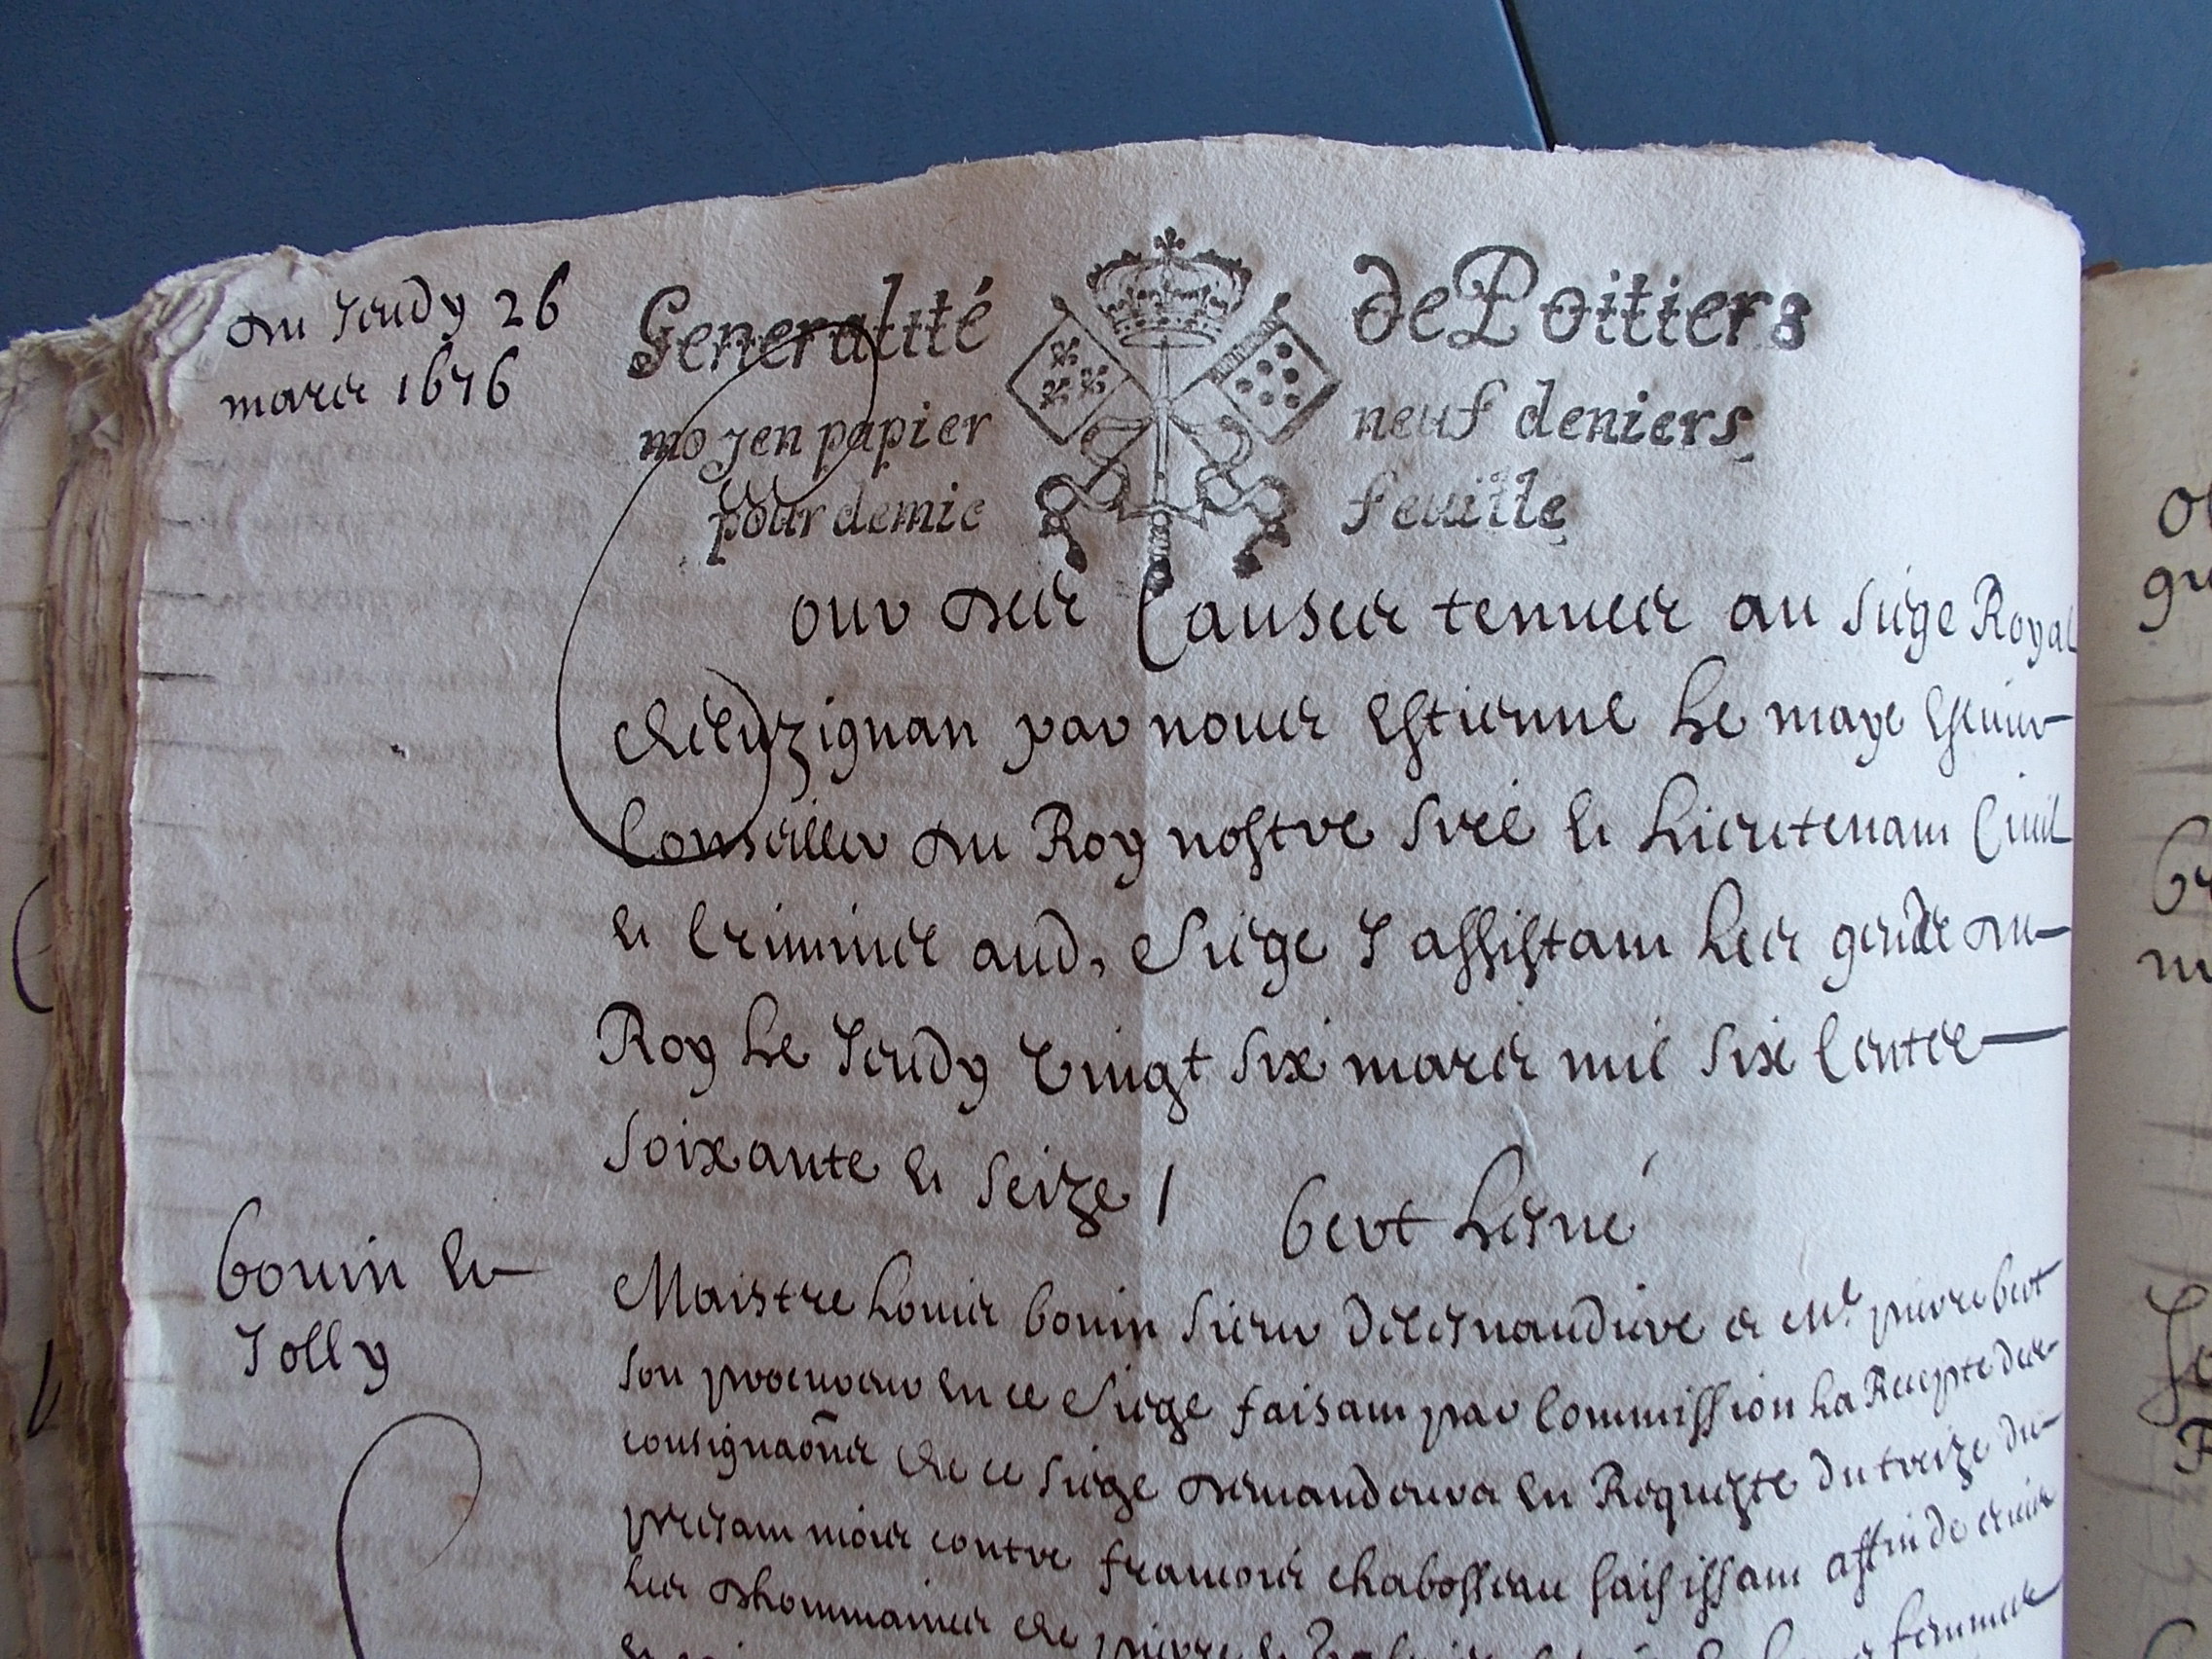 du Jeudy 26
mars 1676
Generalité de Poitiers
moyen papier neuf deniers
pour demie feuille
Jour des Causes tenues au siege Royal
de Luzignan par nous Estienne Le maye Escuier
Conseiller du Roy nostre sire et Lieutenant Civil
et Criminel aud. Siege y assistant Les gens du
Roy Le Jeudy vingt six mars mil six Centz
soixante et seize /
bert Lesné
bouin et
Jolly
Maistre Louis bouin sieur des et Mr. pierre bert
son procureur en ce Siege faisant par Commission La Recepte des
consignaõns de ce siege demandeurs en Requeste du treize du
presant mois contre francois chabosseau saisissant affin de crier
Les dhommaines de pierre
femmes